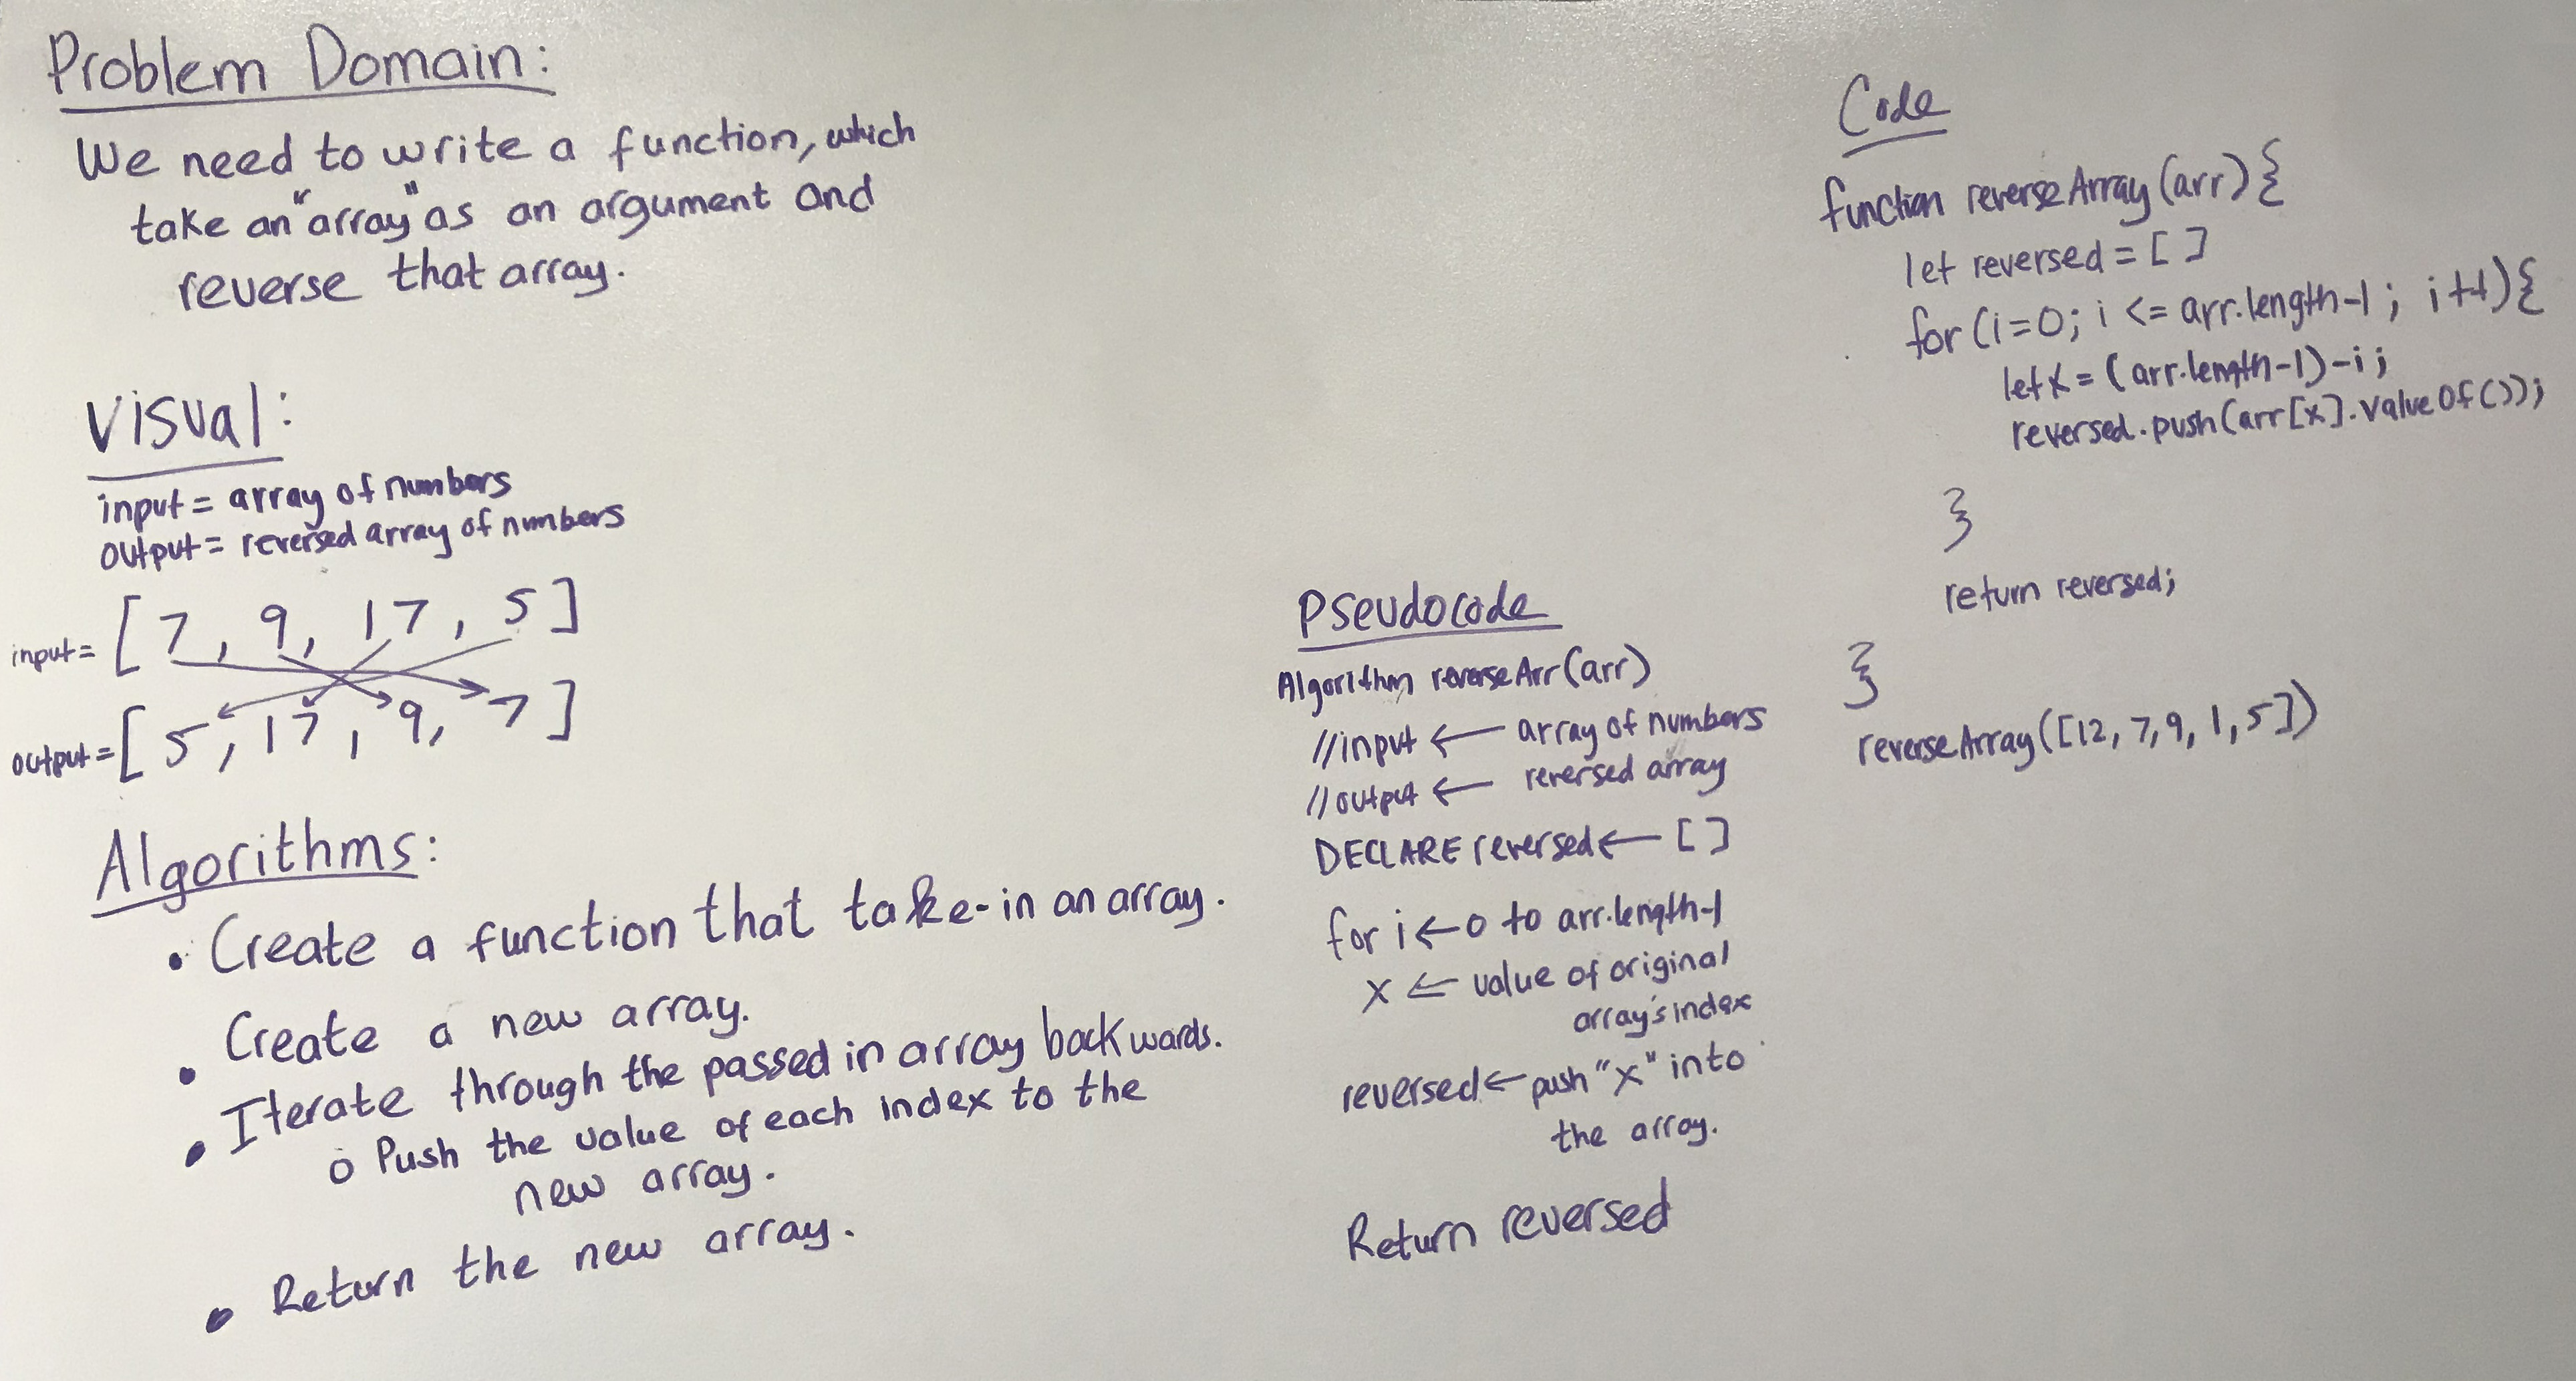 Problem Domain:
We need to write a function, which
take an "array" as an argument and
reverse that array.
Visual:
input = array of numbers
output = reversed array of numbers
input = [7, 9, 17, 5]
output = [5, 17, 9, 7]
Algorithms:
• Create a function that take-in an array.
• Create a new array.
• Iterate through the passed in array backwards.
o Push the value of each index to the
new array.
• Return the new array.
Pseudocode
Algorithm reverseArr(arr)
//input ← array of numbers
//output ← reversed array
DECLARE reversed ← []
for i ← 0 to arr.length-1
x ← value of original
array's index
reversed ← push "x" into
the array.
Return reversed
Code
function reverseArray(arr){
let reversed = []
for (i=0; i <= arr.length-1; i++){
let x = (arr.length-1)-i;
reversed.push(arr[x].valueOf());
}
return reversed;
}
reverseArray([12, 7, 9, 1, 5])